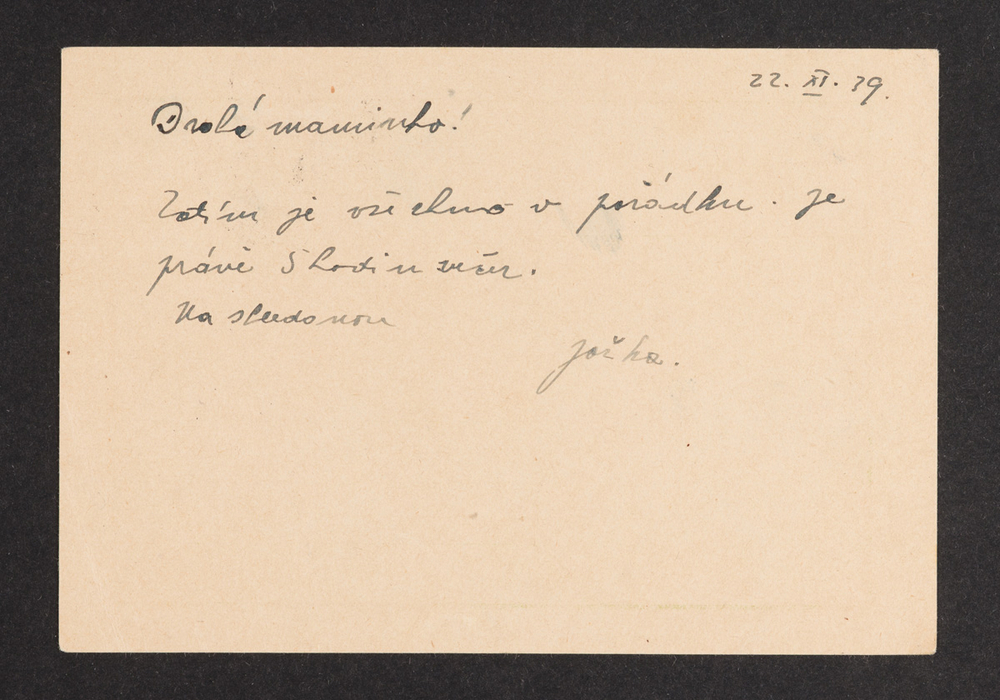 22. XI. 39.
Drahá maminko!
Zatím je všechno v pořádku. Je
právě 5 hodin večer.
Na shledanou
Joška.